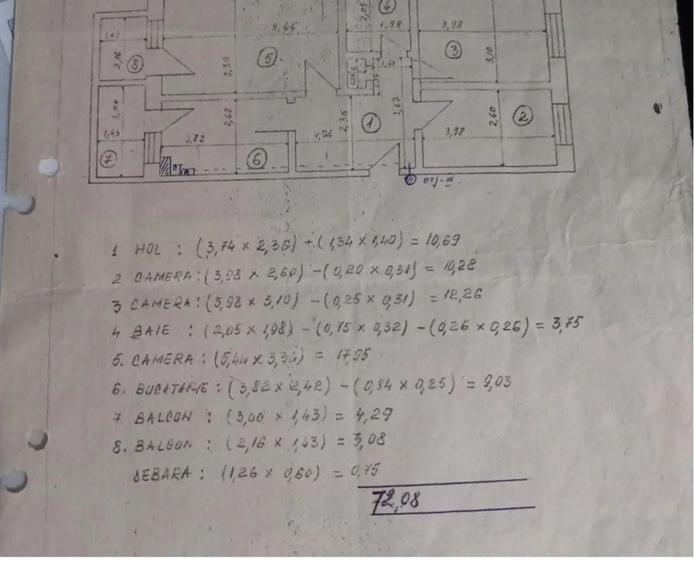 5,46
1,98
2,05
4
3,98
3
3,10
2,16
8
5
3,30
1,40
3,00
1,43
2,42
3,82
6
3,74
2,36
1
3,67
3,98
2,60
2
1 HOL : (3,74 x 2,36) + (1,34 x 1,40) = 10,69
2 CAMERA : (3,98 x 2,60) - (0,20 x 0,31) = 10,28
3 CAMERA : (3,98 x 3,10) - (0,25 x 0,31) = 12,26
4 BAIE : (2,05 x 1,98) - (0,75 x 0,32) - (0,26 x 0,26) = 3,75
5. CAMERA : (5,44 x 3,30) = 17,95
6. BUCATARIE : (3,82 x 2,42) - (0,84 x 0,25) = 9,03
7 BALCON : (3,00 x 1,43) = 4,29
8. BALCON : (2,16 x 1,43) = 3,08
DEBARA : (1,26 x 0,60) = 0,75
72,08